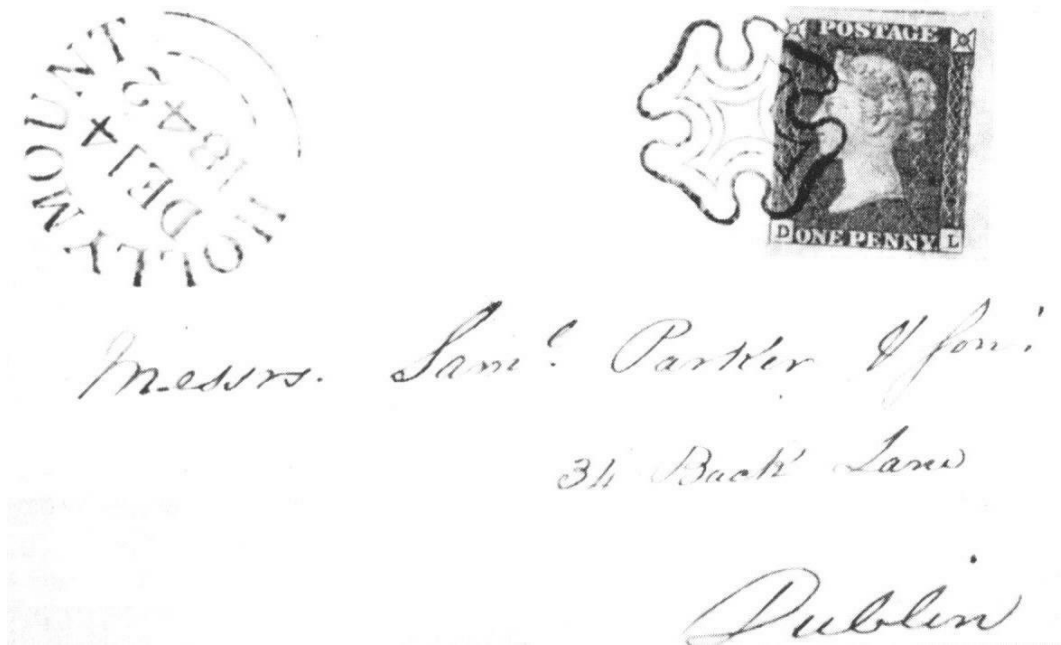 HOLLYMOUNT
DE 14
1842
POSTAGE
D ONE PENNY L
Messrs. Saml. Parker & Son.
34 Back Lane
Dublin